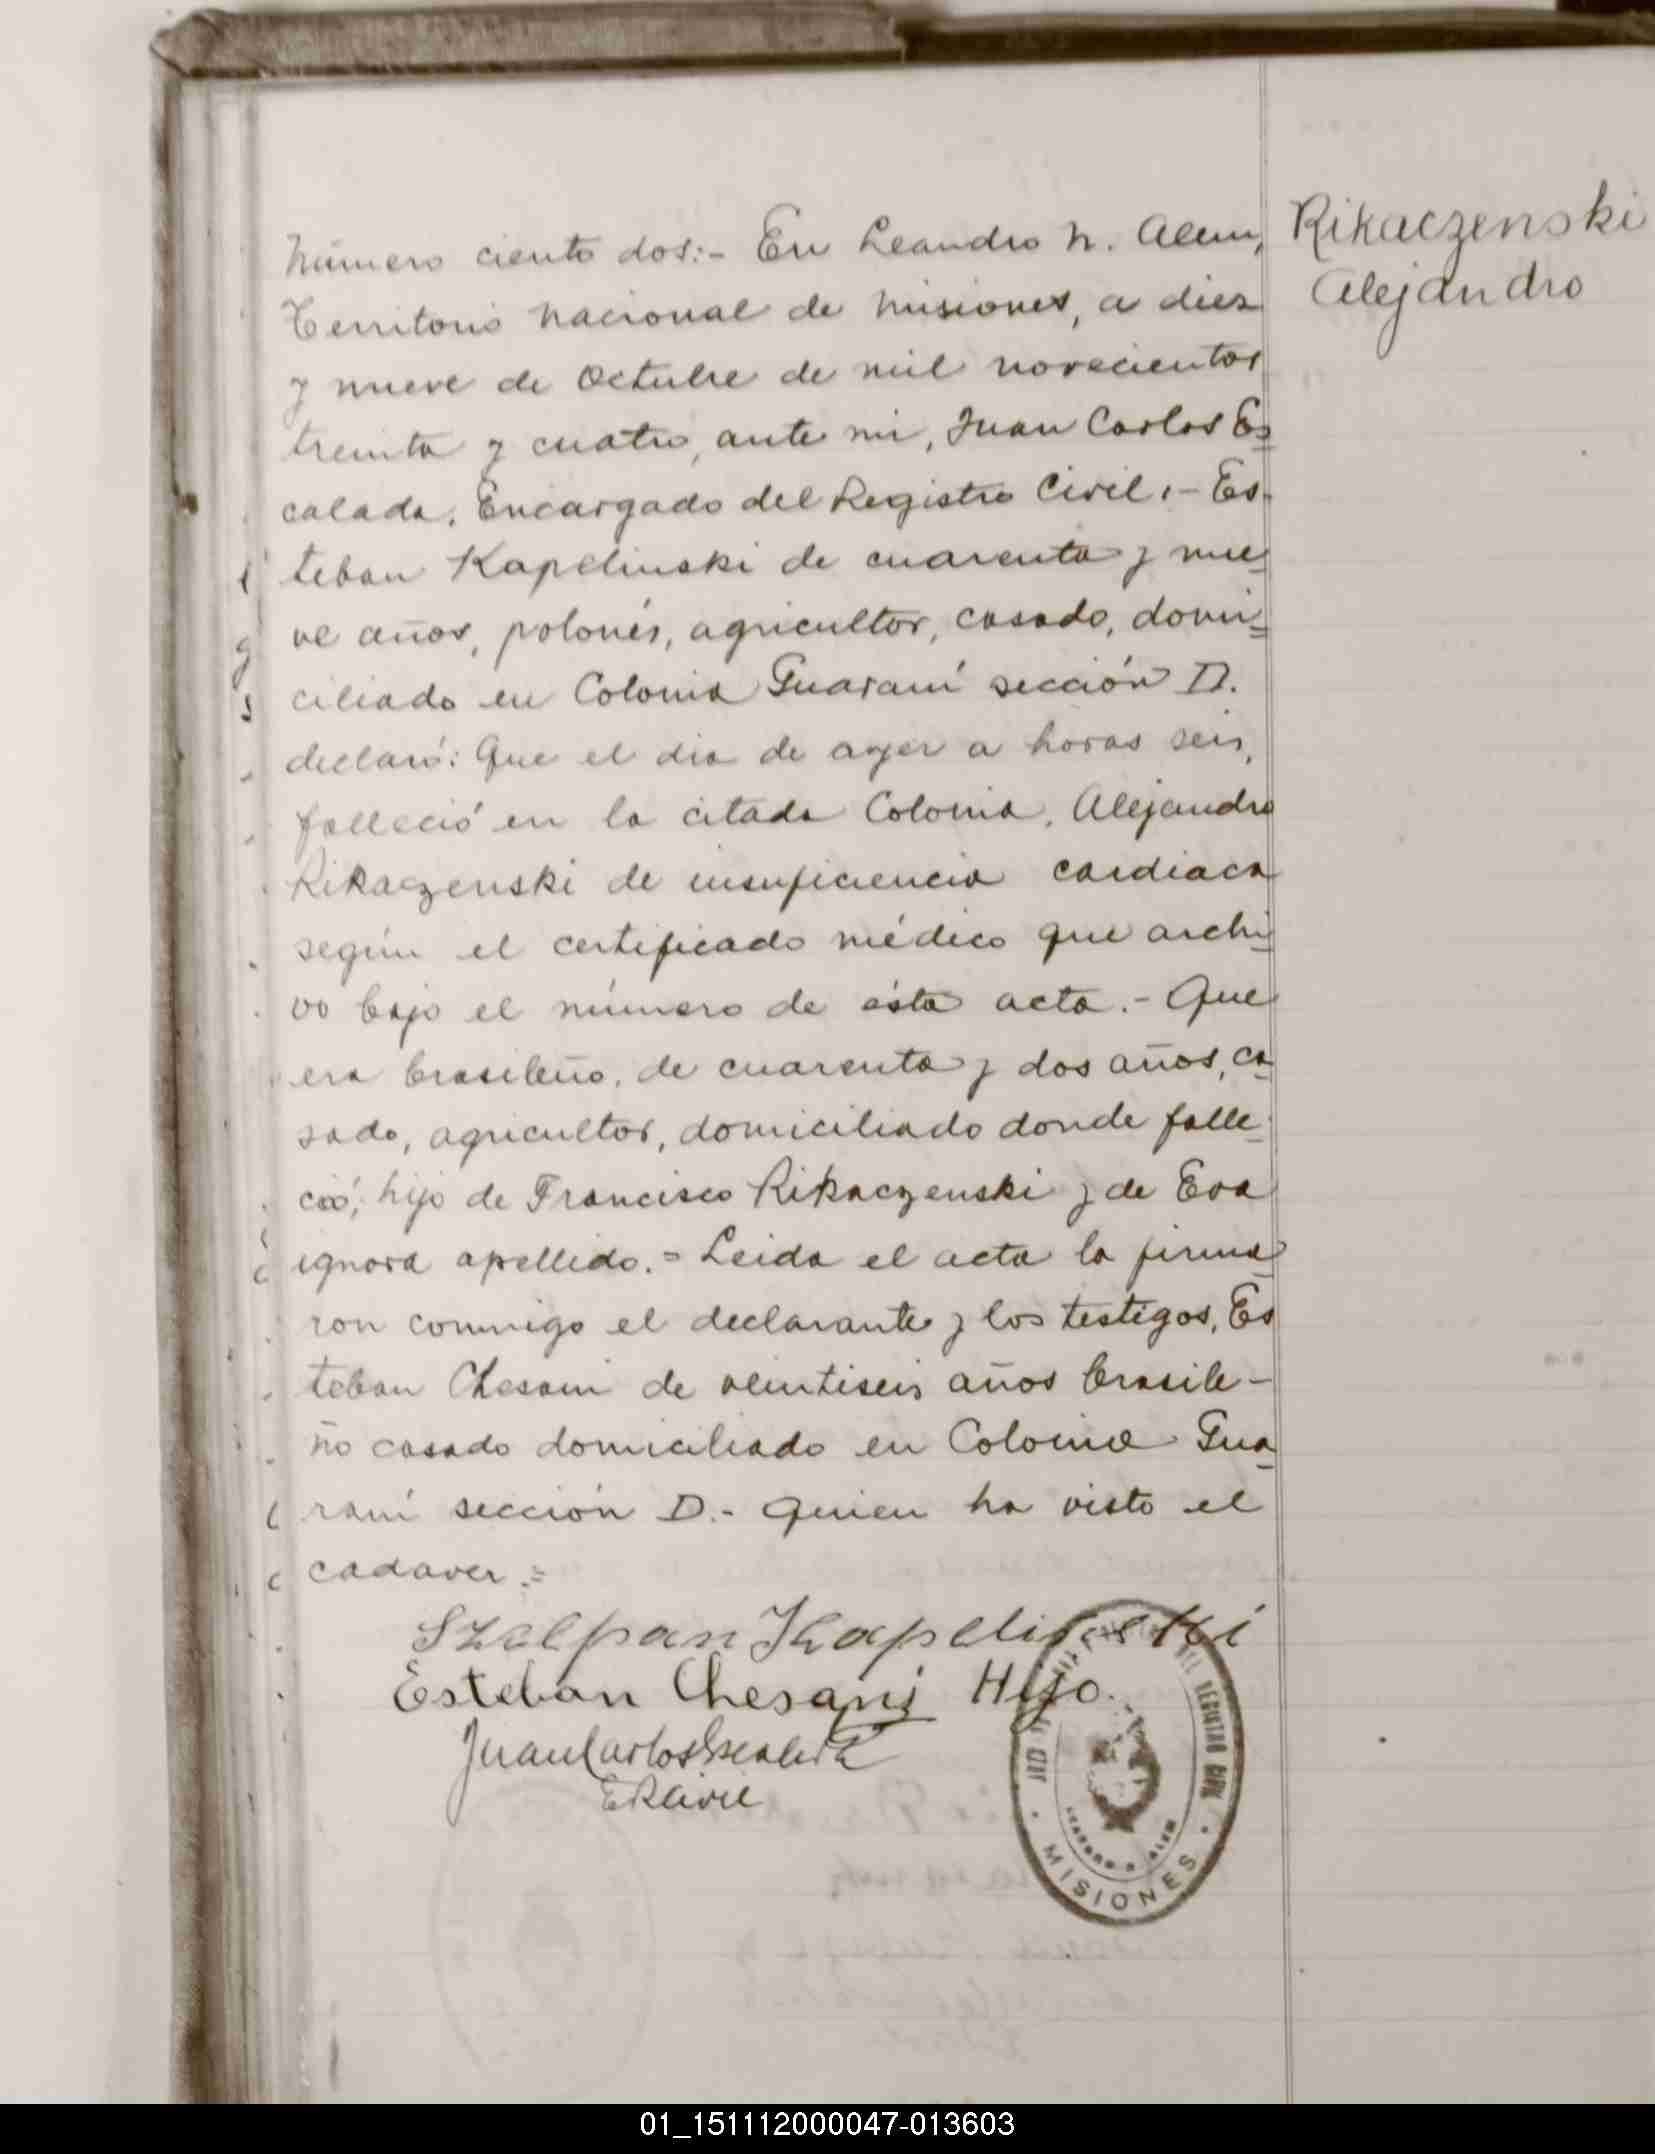 Rikaczenski
Alejandro
Número ciento dos:- En Leandro N. Alem,
Territorio Nacional de Misiones, a diez
y nueve de Octubre de mil novecientos
treinta y cuatro, ante mi, Juan Carlos Es
calada, Encargado del Registro Civil:- Es-
teban Kapelinski de cuarenta y nue
ve años, polonés, agricultor, casado, domi
ciliado en Colonia Guaraní sección D.
declaró: Que el dia de ayer a horas seis,
falleció en la citada Colonia, Alejandro
Rikaczenski de insuficiencia cardiaca
según el certificado médico que archi
vo bajo el número de ésta acta.- Que
era brasileño, de cuarenta y dos años, ca
sado, agricultor, domiciliado donde falle
ció; hijo de Francisco Rikaczenski y de Eva
ignora apellido.= Leida el acta la firma
ron conmigo el declarante y los testigos, Es
teban Chesani de veintiseis años brasile-
ño casado domiciliado en Colonia Gua
raní sección D.- Quien ha visto el
cadaver.=
Szcepan Kapelinski
Esteban Chesani Hijo.
Juan Carlos Escalada
E R Civil
DEL REGISTRO CIVIL
LEANDRO N. ALEM
MISIONES
01_151112000047-013603